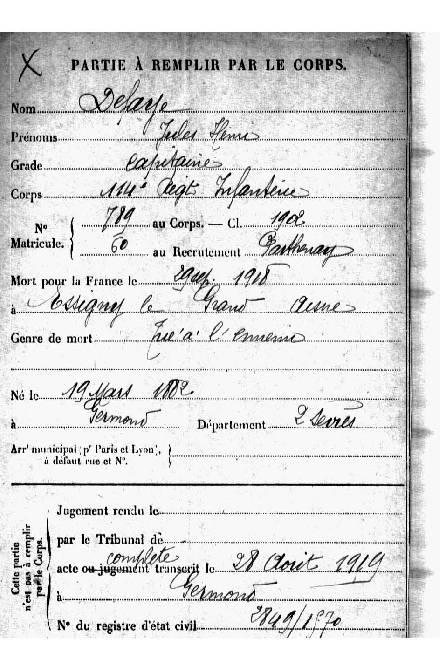 PARTIE À REMPLIR PAR LE CORPS.
Nom
Prénoms Jules Henri
Grade Capitaine
Corps 114e Régt Infanterie
No Matricule. { 789 au Corps. — Cl. 1902
60 au Recrutement Parthenay
Mort pour la France le 1918
à Essigny le Grand Aisne
Genre de mort Tué à l'ennemi
Né le 19 Mars 1882
à Germond Département 2 Sèvres
Arrt municipal (pr Paris et Lyon), à défaut rue et No. }
Cette partie n'est pas à remplir par le Corps.
Jugement rendu le
par le Tribunal de
acte ou jugement complète transcrit le 28 Août 1919
à Germond
No du registre d'état civil 2849/1970